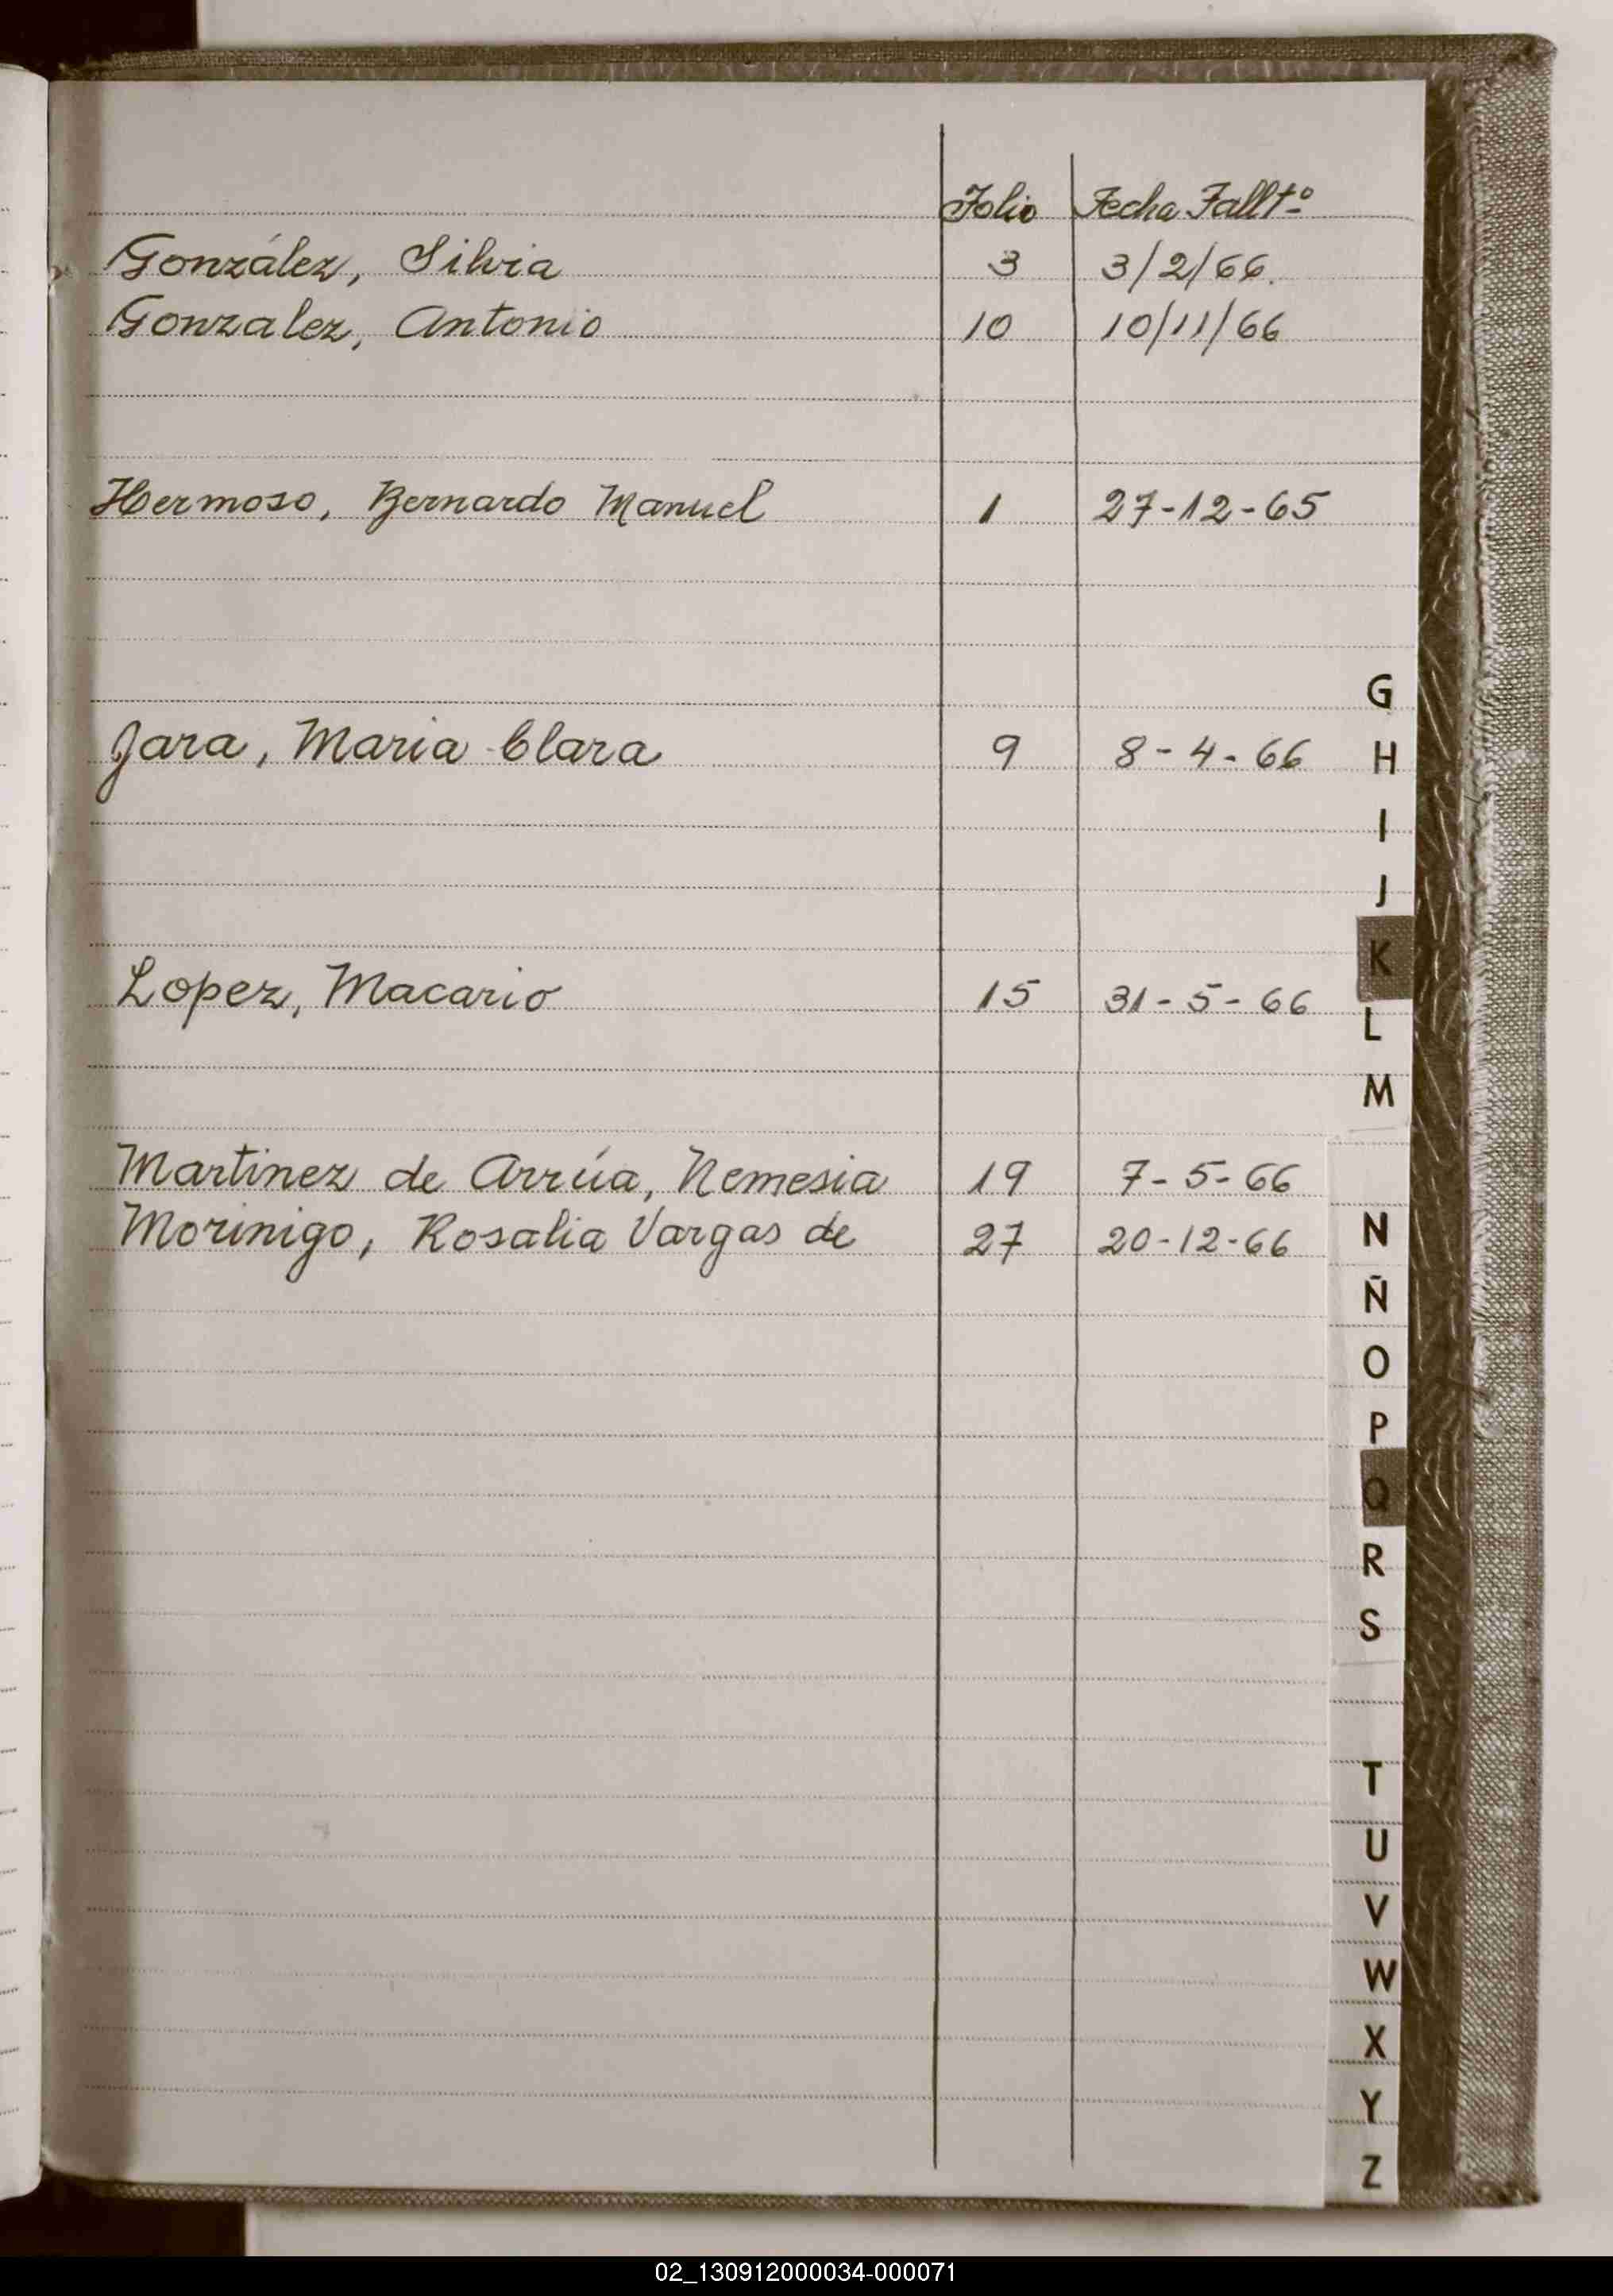 Folio Fecha Fallt.º
González, Silvia 3 3/2/66.
Gonzalez, Antonio 10 10/11/66
Hermoso, Bernardo Manuel 1 27-12-65
G
Jara, Maria Clara 9 8-4-66
H
I
J
K
Lopez, Macario 15 31-5-66
L
M
Martinez de Arrúa, Nemesia 19 7-5-66
Morinigo, Rosalia Vargas de 27 20-12-66
N
Ñ
O
P
Q
R
S
T
U
V
W
X
Y
Z
02_130912000034-000071